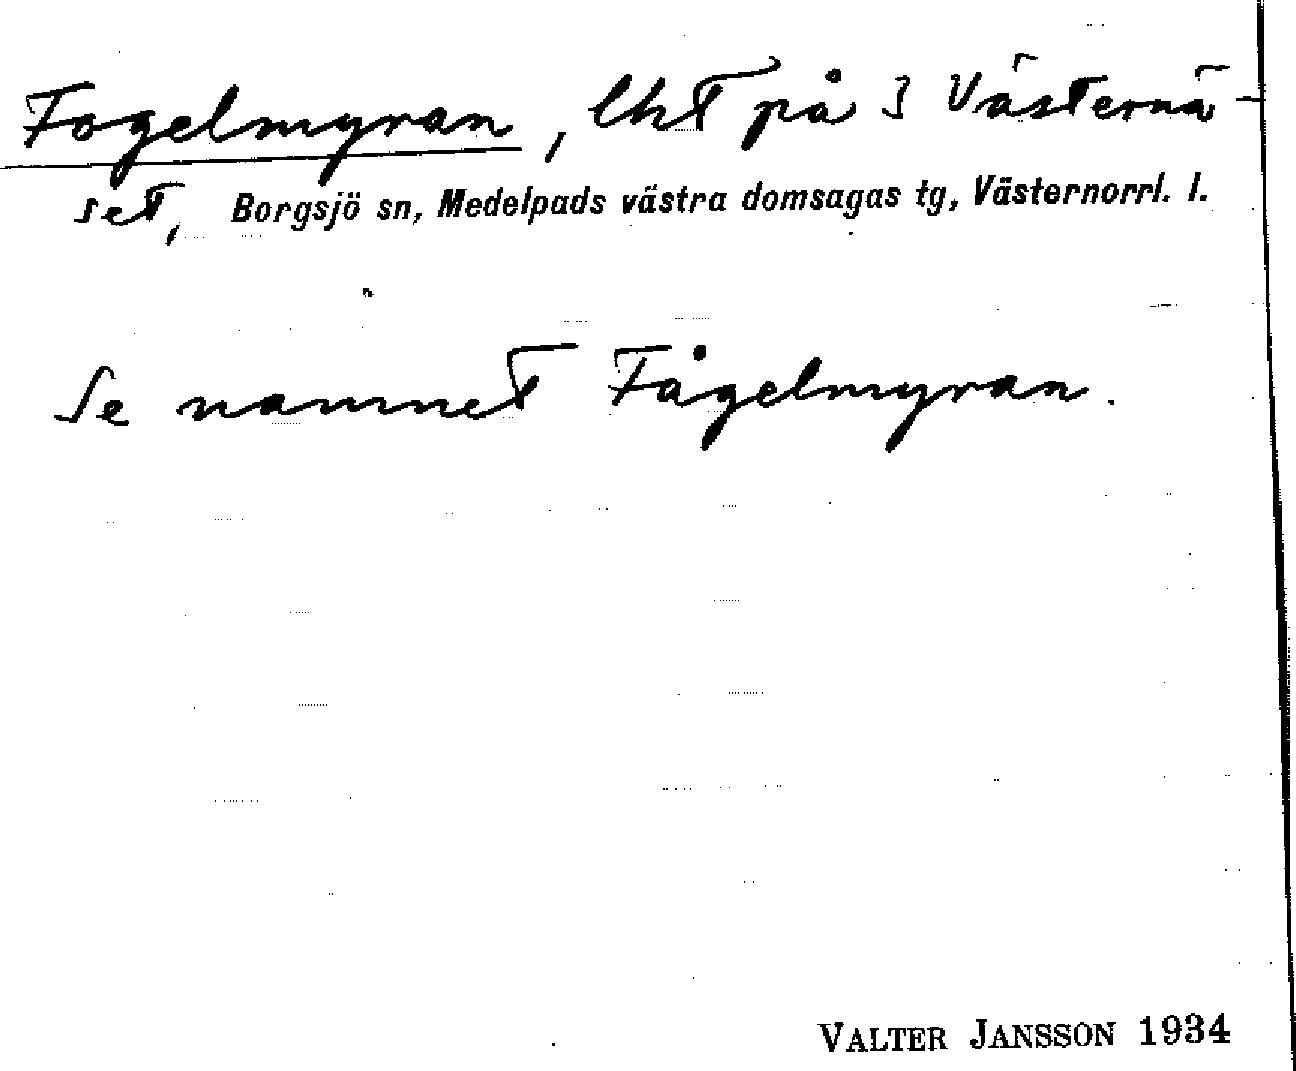 Fogelmyran, lht på 3 Västernä-
set, Borgsjö sn, Medelpads västra domsagas tg, Västernorrl. l.
Se namnet Fågelmyran.
VALTER JANSSON 1934